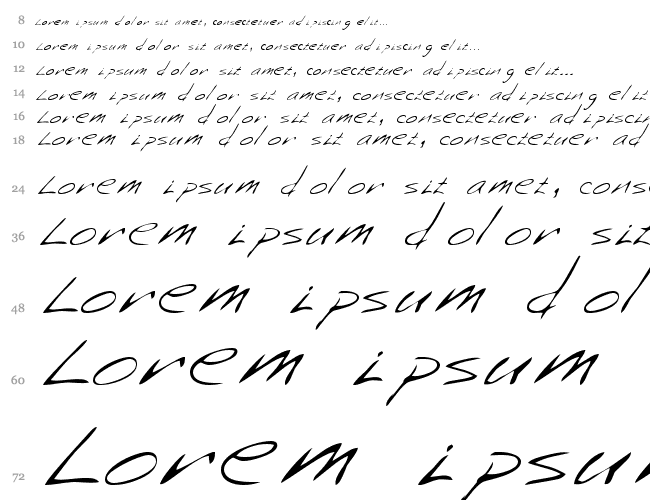 8 Lorem ipsum dolor sit amet, consectetuer adipiscing elit...
10 Lorem ipsum dolor sit amet, consectetuer adipiscing elit...
12 Lorem ipsum dolor sit amet, consectetuer adipiscing elit...
14 Lorem ipsum dolor sit amet, consectetuer adipiscing elit
16 Lorem ipsum dolor sit amet, consectetuer adipiscin
18 Lorem ipsum dolor sit amet, consectetuer ad
24 Lorem ipsum dolor sit amet, cons
36 Lorem ipsum dolor sit
48 Lorem ipsum dol
60 Lorem ipsum
72 Lorem ipsu